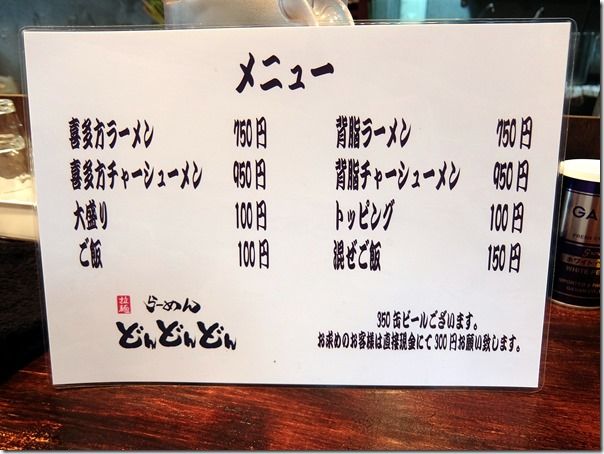 メニュー
喜多方ラーメン 750円
喜多方チャーシューメン 950円
大盛り 100円
ご飯 100円
背脂ラーメン 750円
背脂チャーシューメン 950円
トッピング 100円
混ぜご飯 150円
拉麺 らーめん
どんどんどん
350缶ビールございます。
お求めのお客様は直接現金にて300円お願い致します。
GA
ホワイト
WHITE PE